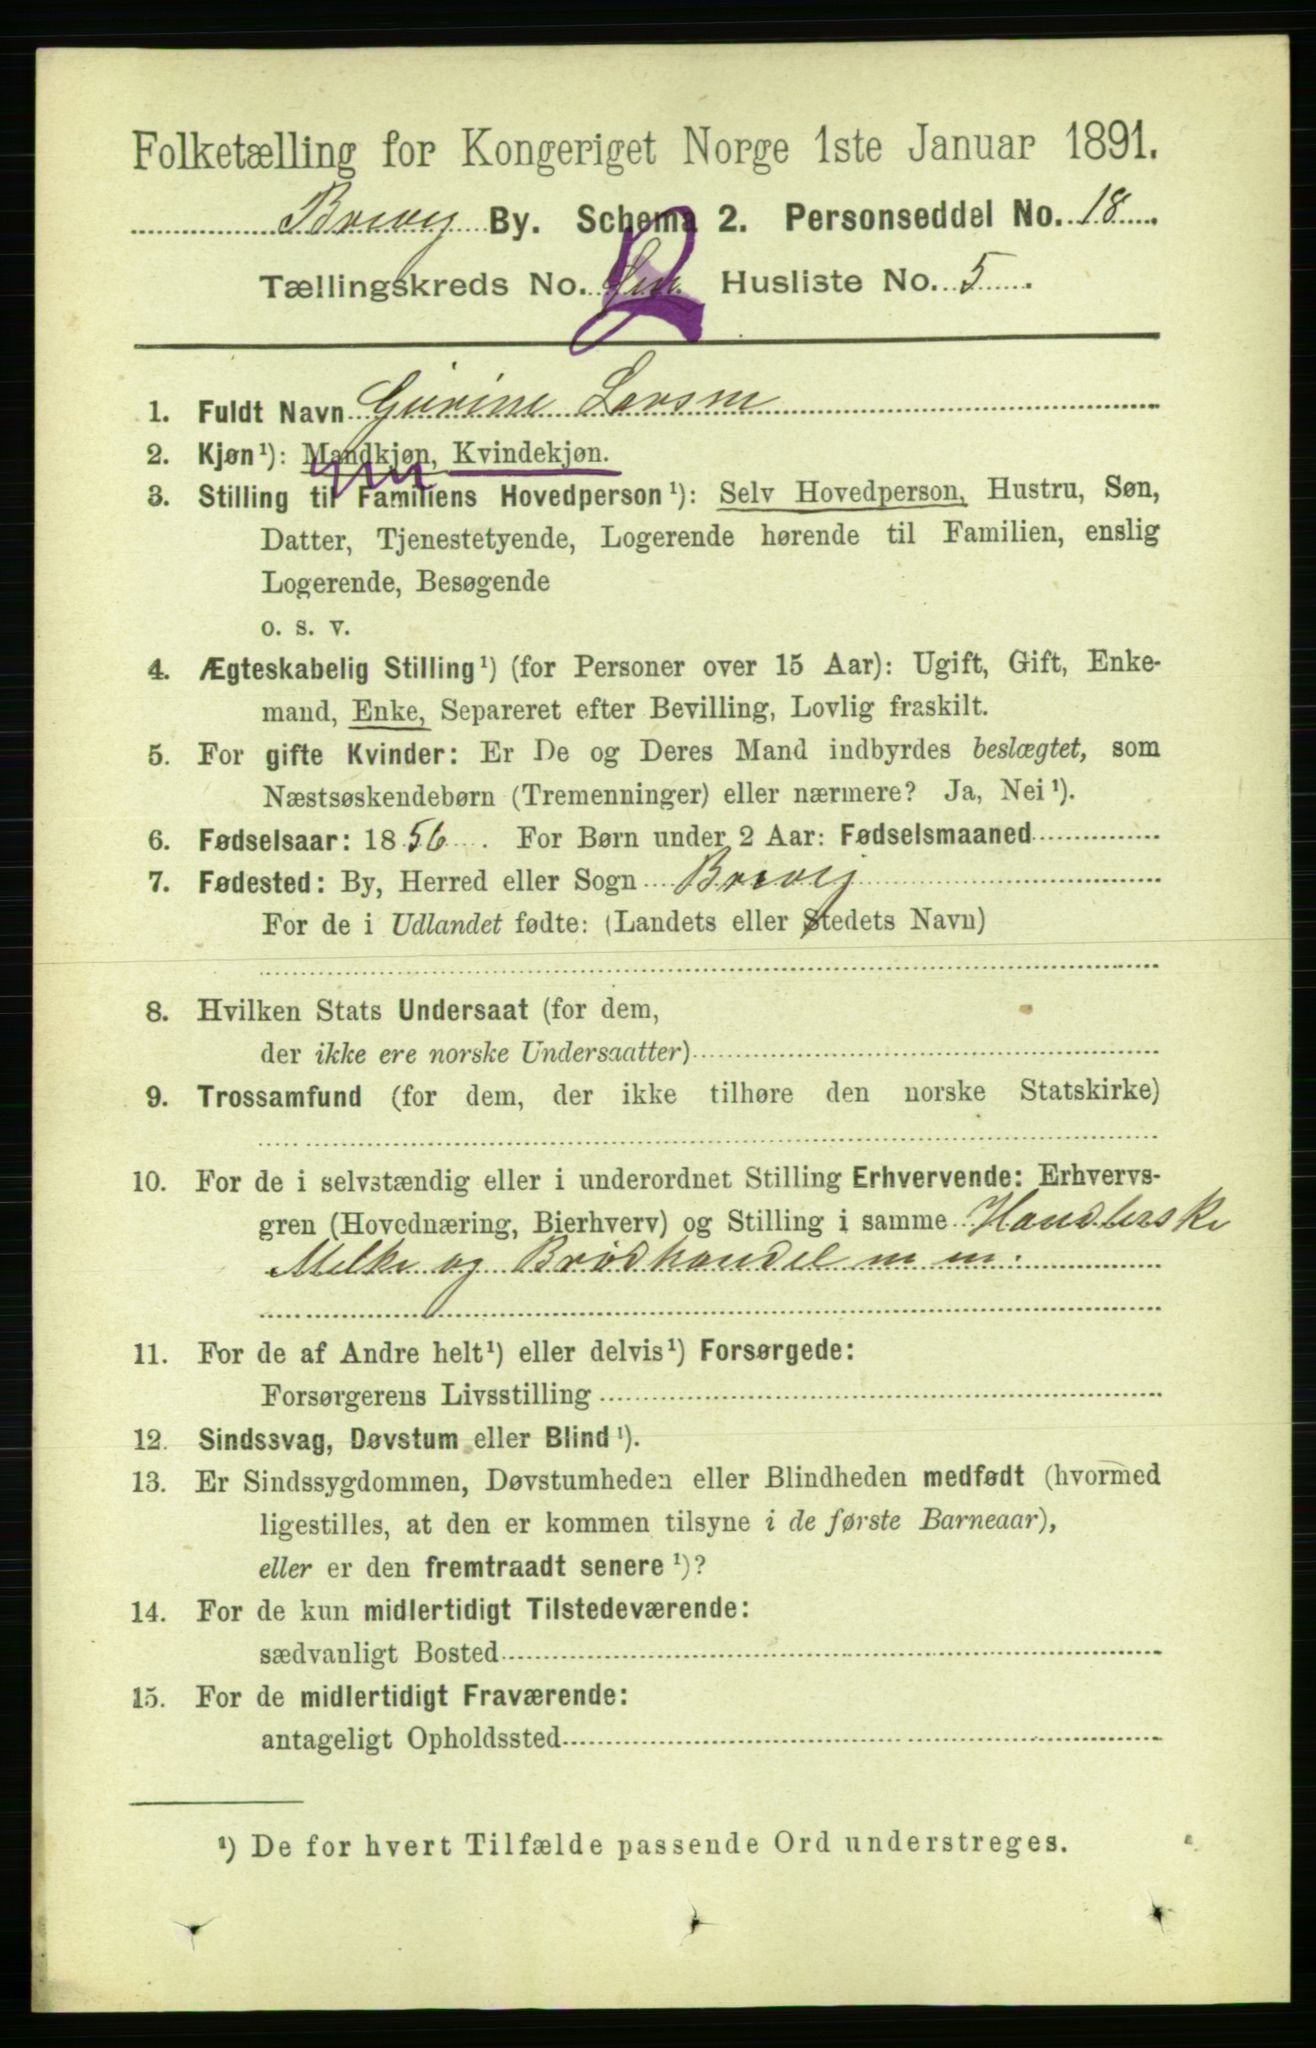 Folketælling for Kongeriget Norge 1ste Januar 1891.
Brevig By. Schema 2. Personseddel No. 18.
Tællingskreds No. Husliste No. 5.
1. Fuldt Navn Gurine Larsen
2. Kjøn¹): Mandkjøn, Kvindekjøn.
3. Stilling til Familiens Hovedperson¹): Selv Hovedperson, Hustru, Søn,
Datter, Tjenestetyende, Logerende hørende til Familien, enslig
Logerende, Besøgende
o. s. v.
4. Ægteskabelig Stilling¹) (for Personer over 15 Aar): Ugift, Gift, Enke-
mand, Enke, Separeret efter Bevilling, Lovlig fraskilt.
5. For gifte Kvinder: Er De og Deres Mand indbyrdes beslægtet, som
Næstsøskendebørn (Tremenninger) eller nærmere? Ja, Nei¹).
6. Fødselsaar: 1856. For Børn under 2 Aar: Fødselsmaaned
7. Fødested: By, Herred eller Sogn Brevig
For de i Udlandet fødte: (Landets eller Stedets Navn)
8. Hvilken Stats Undersaat (for dem,
der ikke ere norske Undersaatter)
9. Trossamfund (for dem, der ikke tilhøre den norske Statskirke)
10. For de i selvstændig eller i underordnet Stilling Erhvervende: Erhvervs-
gren (Hovednæring, Bierhverv) og Stilling i samme Handlerske
Melke og Brødhandel m m.
11. For de af Andre helt¹) eller delvis¹) Forsørgede:
Forsørgerens Livsstilling
12. Sindssvag, Døvstum eller Blind¹).
13. Er Sindssygdommen, Døvstumheden eller Blindheden medfødt (hvormed
ligestilles, at den er kommen tilsyne i de første Barneaar),
eller er den fremtraadt senere¹)?
14. For de kun midlertidigt Tilstedeværende:
sædvanligt Bosted
15. For de midlertidigt Fraværende:
antageligt Opholdssted
¹) De for hvert Tilfælde passende Ord understreges.